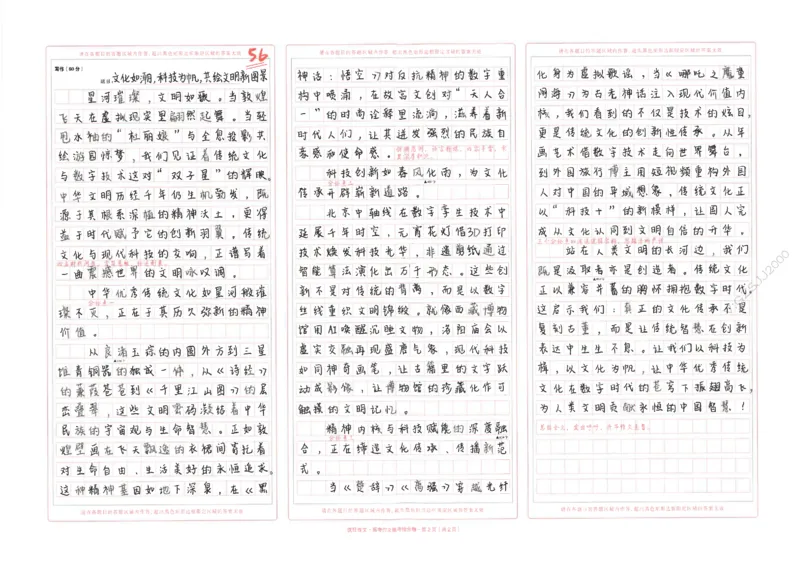 请在各题目的答题区域内作答,超出黑色矩形边框限定区域的答案无效
写作(60分)
56
题目 文化如潮,科技为帆,共绘文明新图景
星河璀璨,文明如歌。当敦煌
飞天在虚拟现实里翩然起舞。当轻
甩水袖的“杜丽娘”与全息投影共
绘游园惊梦,我们见证着传统文化
与数字技术这对“双子星”的辉映。
中华文明历经千年仍生机勃发,既
源于其根系深植的精神沃土,更得
益于时代赋予它的创新羽翼。传统
文化与现代科技的交响,正谱写着
一曲震撼世界的文明咏叹调。
中华优秀传统文化如星河般璀
璨不灭,正在于其历久弥新的精神
价值。
从良渚玉琮的内圆外方到三星
堆青铜器的独成一体,从《诗经》
的蒹葭苍苍到《千里江山图》的层
峦叠翠,这些文明密码凝结着中华
民族的宇宙观与生命智慧。正如敦
煌壁画在飞天飘逸的衣裙间寄托着
对生命自由、生活美好的永恒追求。
这种精神基因如地下深泉,在《黑
神话:悟空》对反抗精神的数字重
构中喷涌,在故宫文创对“天人合
一”的时尚诠释里流淌,滋养着新
时代人们,让其迸发强烈的民族自
豪感和使命感。
科技创新如春风化雨,为文化
传承开辟崭新道路。
北京中轴线在数字孪生技术中
延展千年时空,元宵花灯借3D打印
技术焕发科技光华,非遗剪纸通过
智能算法演化出万千形态。这些创
新不是对传统的背离,而是以数字
丝线重织文明锦缎。就像西藏博物
馆用AI唤醒沉睡文物,洛阳庙会以
虚实交融再现盛唐气象,现代科技
如同神奇画笔,让古籍里的文字跃
动成影像,让博物馆的珍藏化作可
触摸的文明记忆。
精神内核与科技赋能的深度融
合,正在缔造文化传承、传播新范
式。
当《楚辞》《离骚》穿越光针
化身为虚拟歌谣,当《哪吒之魔童
闹海》为古老神话注入现代价值内
核,我们看到的不仅是技术的炫目,
更是传统文化的创新性传承。从年
画艺术借数字技术走向世界舞台,
到外国旅行博主用短视频重构外国
人对中国的异域想象,传统文化正
以“科技+”的新模样,让国人完
成从文化认同到文明自信的升华。
站在人类文明的长河边,我们
既是汲取者亦是创造者。传统文化
正以兼容并蓄的胸怀拥抱数字时代。
这启示我们:真正的文化传承不是
复刻古董,而是让传统智慧在创新
表达中生生不息。让我们以科技为
楫,以文化为帆,让中华优秀传统
文化在数字时代的苍穹下振翅高飞,
为人类文明贡献永恒的中国智慧!